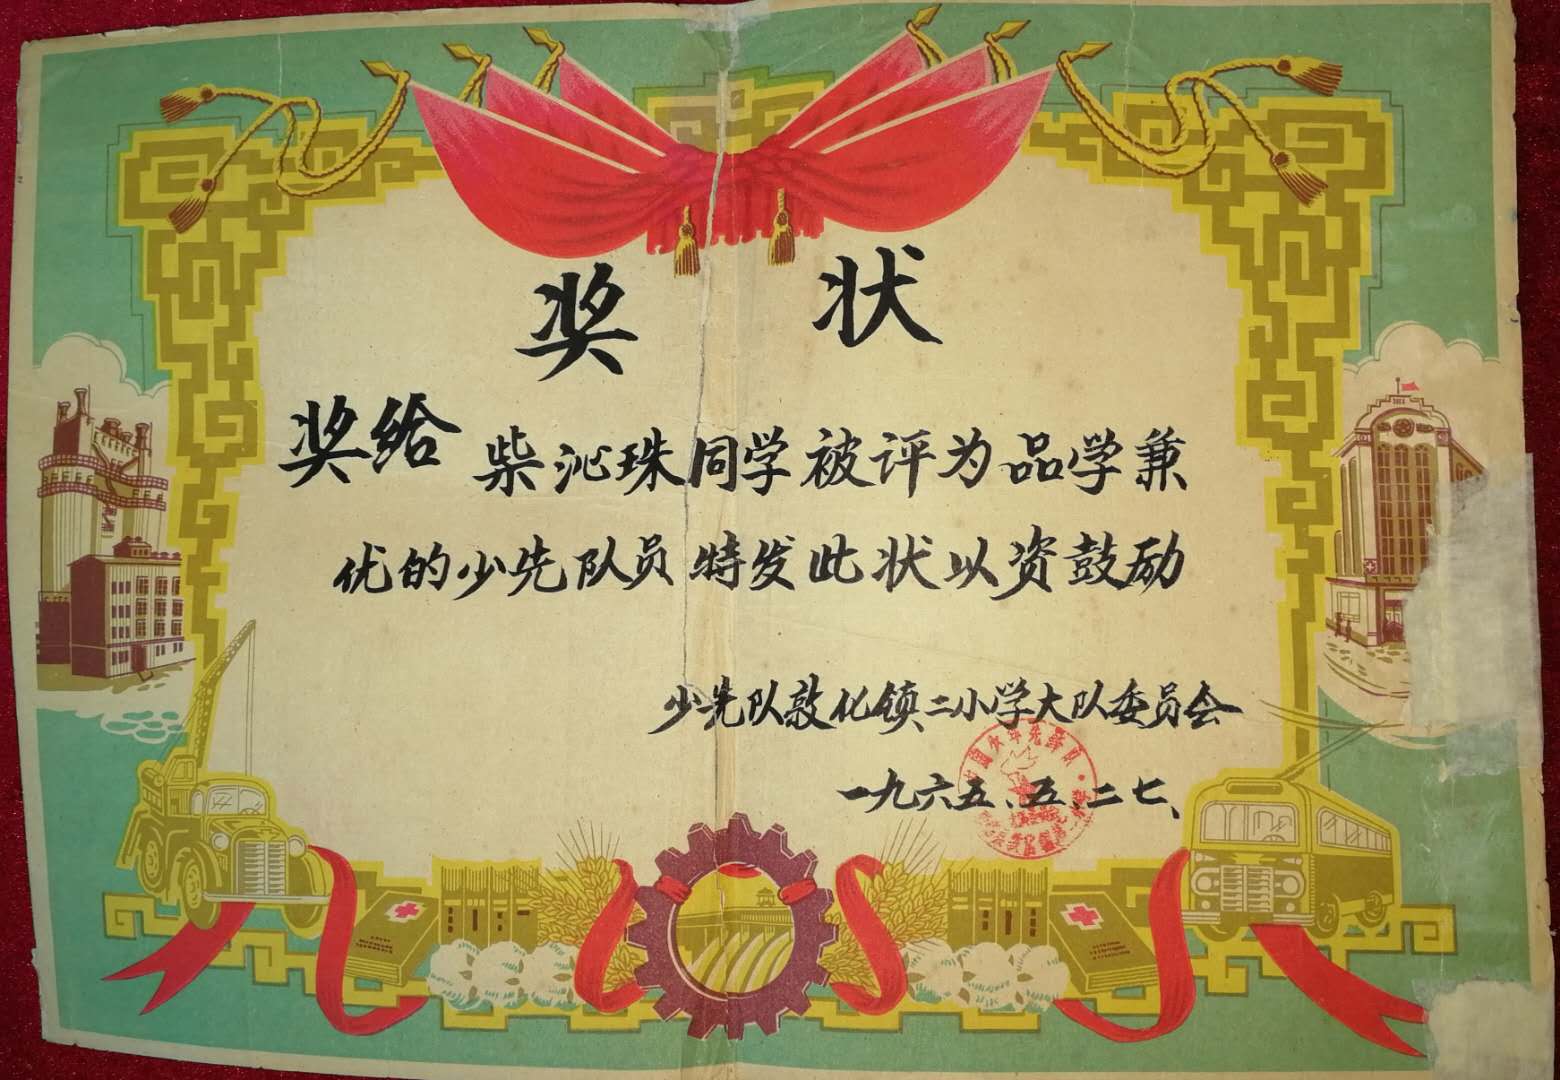 奖状
奖给柴沁珠同学被评为品学兼
优的少先队员特发此状以资鼓励
少先队敦化镇二小学大队委员会
一九六五、五、二七、